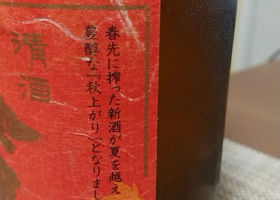 春先に搾った新酒が夏を越え
豊醇な「秋上がり」となりまし
清酒